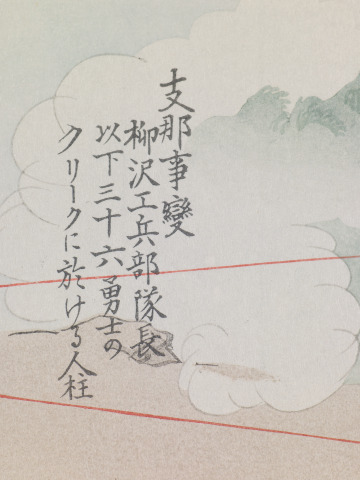 支那事變
柳沢工兵部隊長
以下三十六勇士の
クリークに於ける人柱